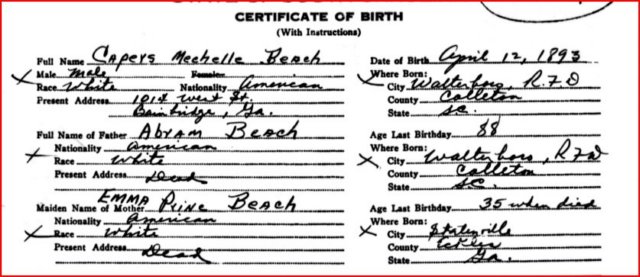 CERTIFICATE OF BIRTH
(With Instructions)
Full Name Capers Mechelle Beach Date of Birth April 12, 1893
Male Male Female Where Born:
Race White Nationality American City Walterboro, R.F.D
Present Address 1014 West St. County Colleton
Bainbridge, Ga. State S.C.
Full Name of Father Abram Beach Age Last Birthday 88
Nationality American Where Born:
Race White City Walterboro, RFD
Present Address Dead County Colleton
State S.C.
Maiden Name of Mother Emma Pline Beach Age Last Birthday 35 when died
Nationality American Where Born:
Race White City Statenville
Present Address Dead County Echols
State Ga.